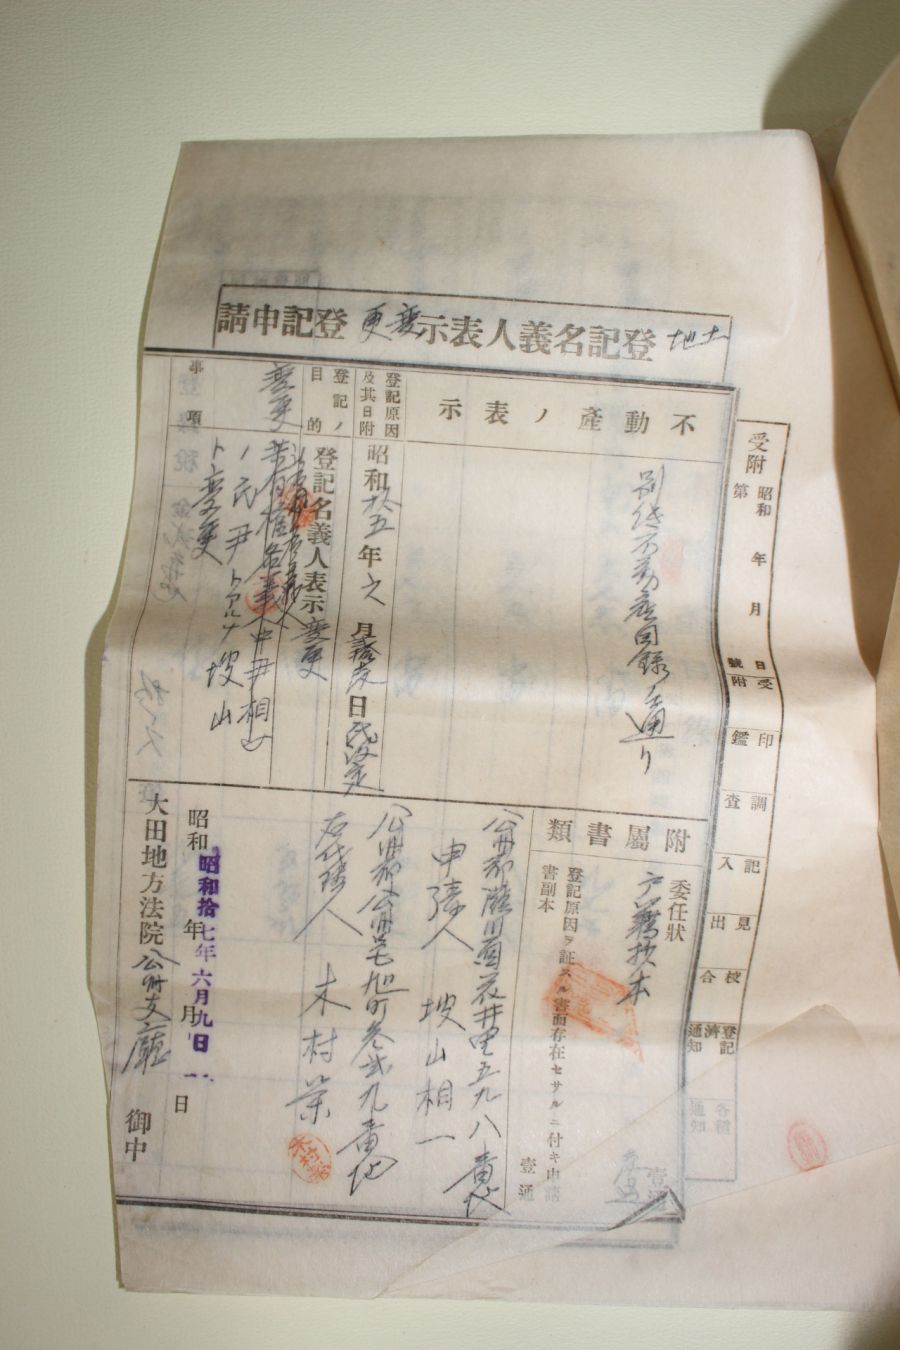 土地登記名義人表示変更登記申請
受附
昭和 年 月 日
第 號
受附
印鑑
調査
記入
見出
校合
登記済通知
各種通知
不動産ノ表示
別紙不動産目録ノ通り
登記原因及其日附
昭和拾五年 月 日氏設定
登記ノ目的
登記名義人表示変更
変更
事項
所有権名義人中尹相
ノ氏尹トアルヲ坡山
ト変更
附屬書類
委任狀 壹通
戸籍抄本
登記原因ヲ証スル書面存在セサルニ付キ申請書副本 壹通
公州郡灘川面花井里五九八番地
申請人 坡山相一
公州郡公州邑旭町参弐九番地
右代理人 木村榮
昭和 年 月 日
昭和拾七年六月九日
大田地方法院公州支廳 御中